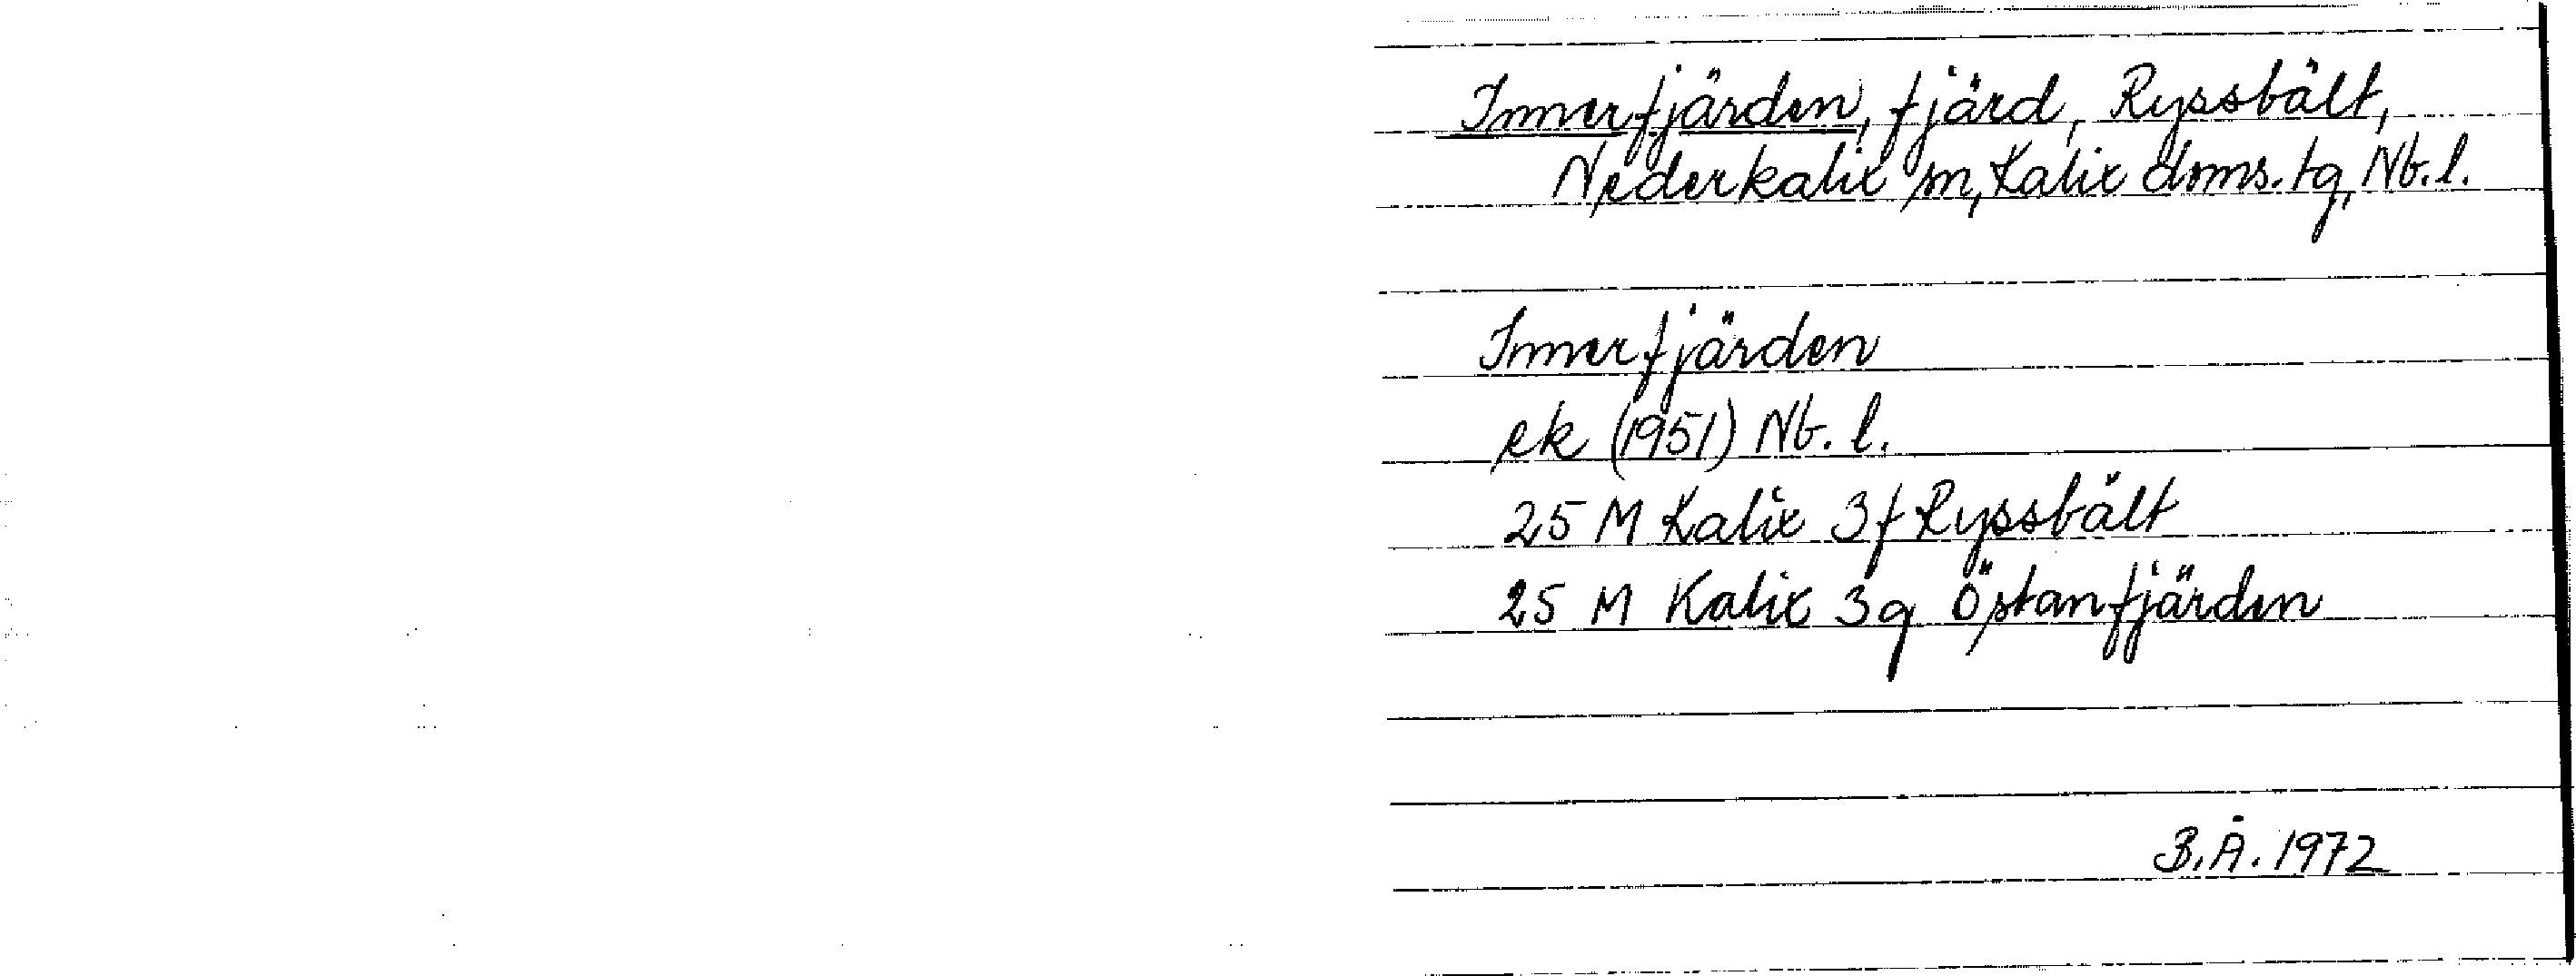 Innerfjärden, fjärd, Ryssbält,
Nederkalix sn, Kalix doms. tg, Nb. l.
Innerfjärden
ek (1951) Nb. l.
25 M Kalix 3f Ryssbält
25 M Kalix 3g Östanfjärden
B. Å. 1972